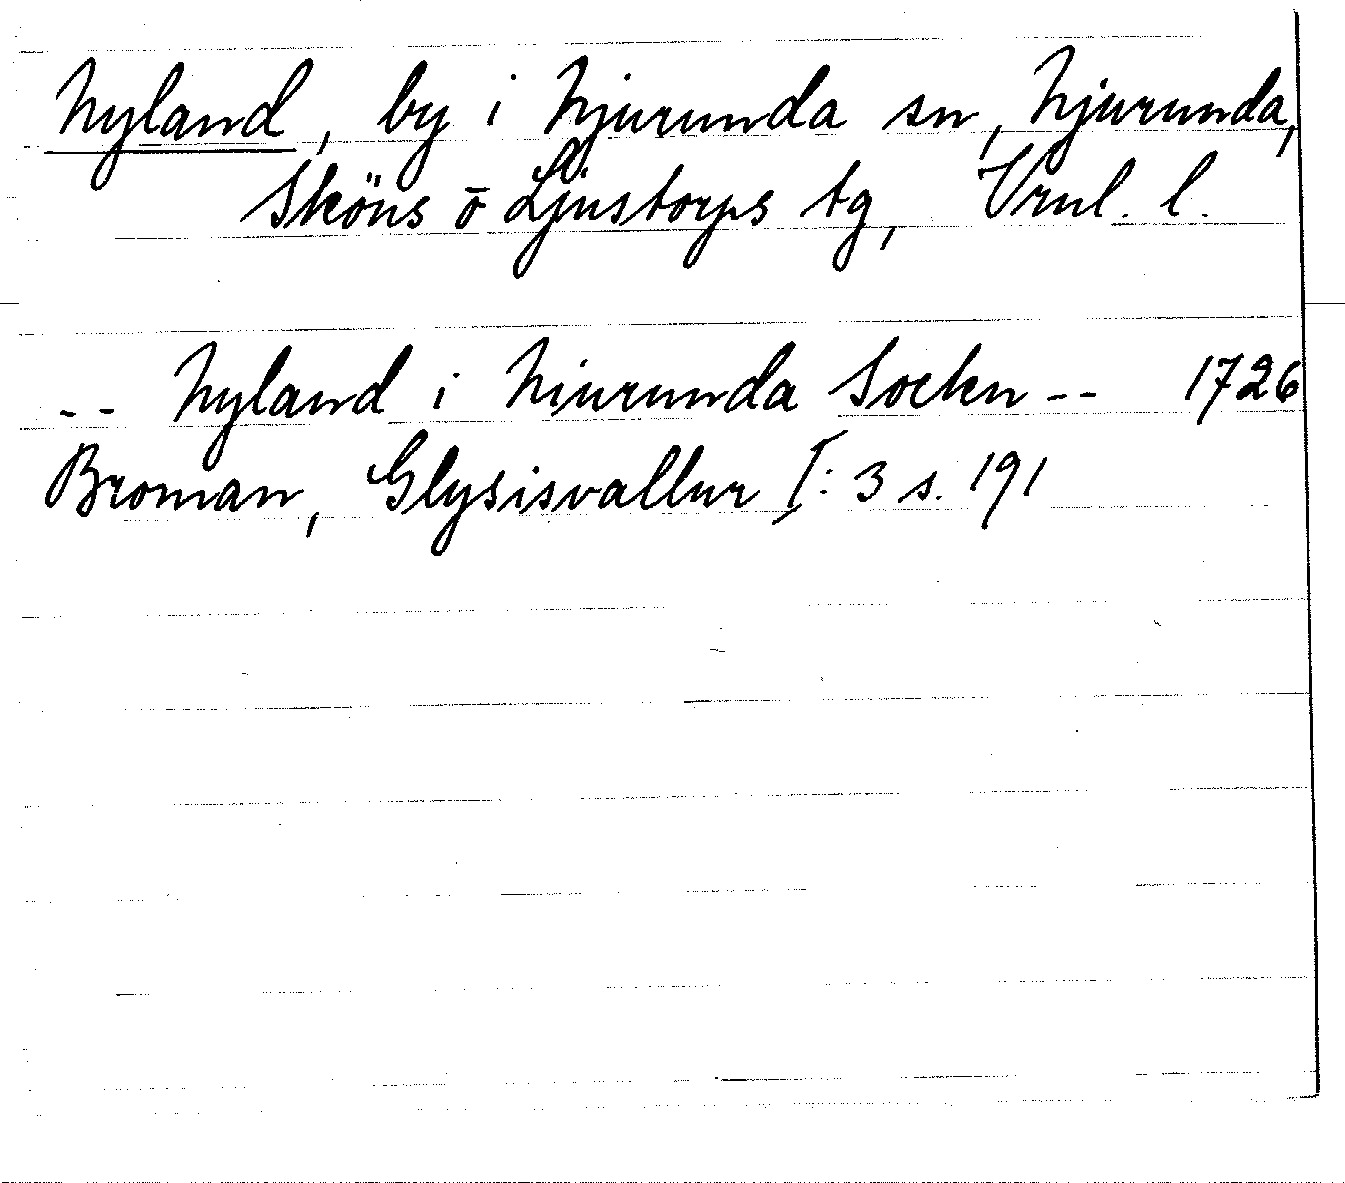 Nyland, by i Njurunda sn, Njurunda,
Sköns o Ljustorps tg, Vrnl. l.
-- Nyland i Niurunda Sockn -- 1726
Broman, Glysisvallur I: 3 s. 191